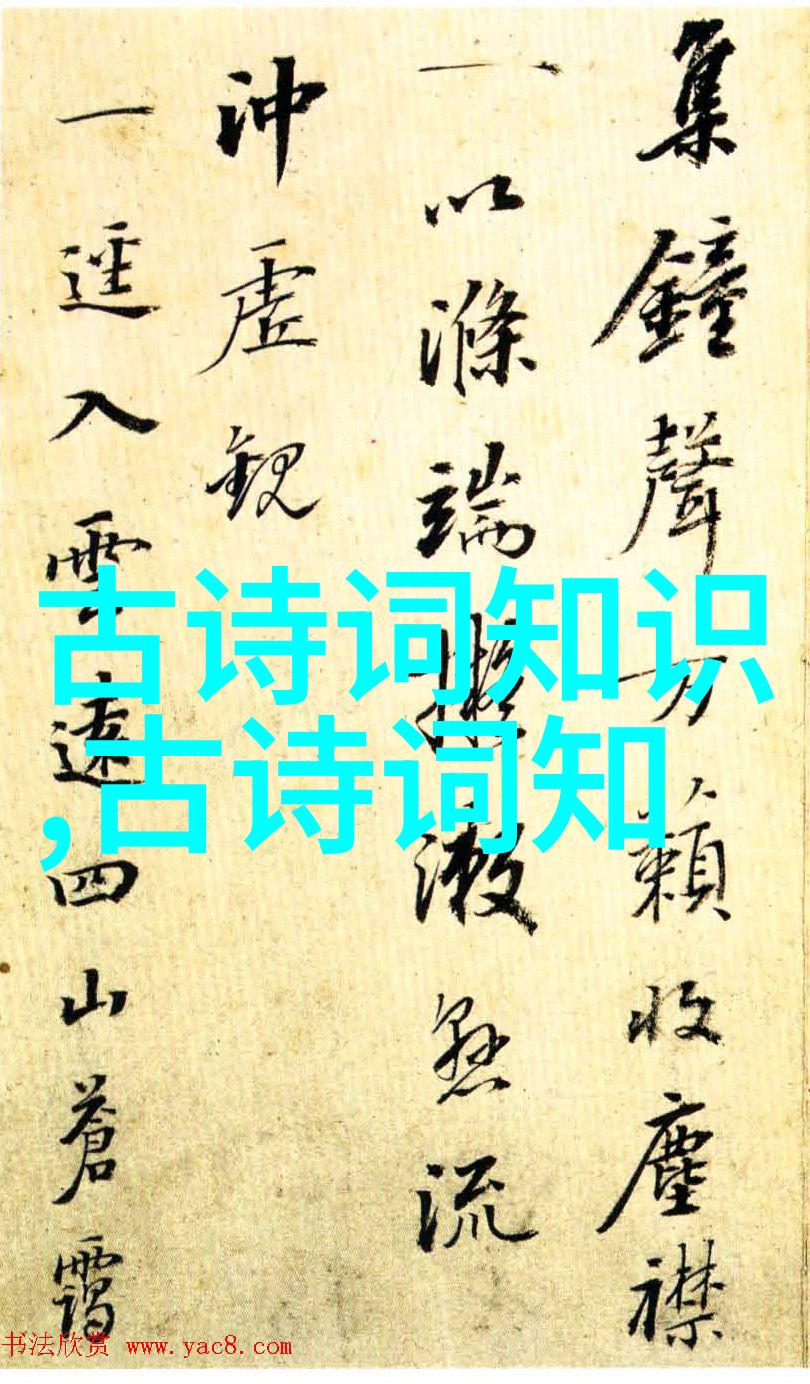 集鐘聲万籟收塵襟
一以滌端擬漱流
沖虛觀
一逕入雲遠四山蒼靄
古诗词知识
,古诗词知
书法欣赏 www.yac8.com